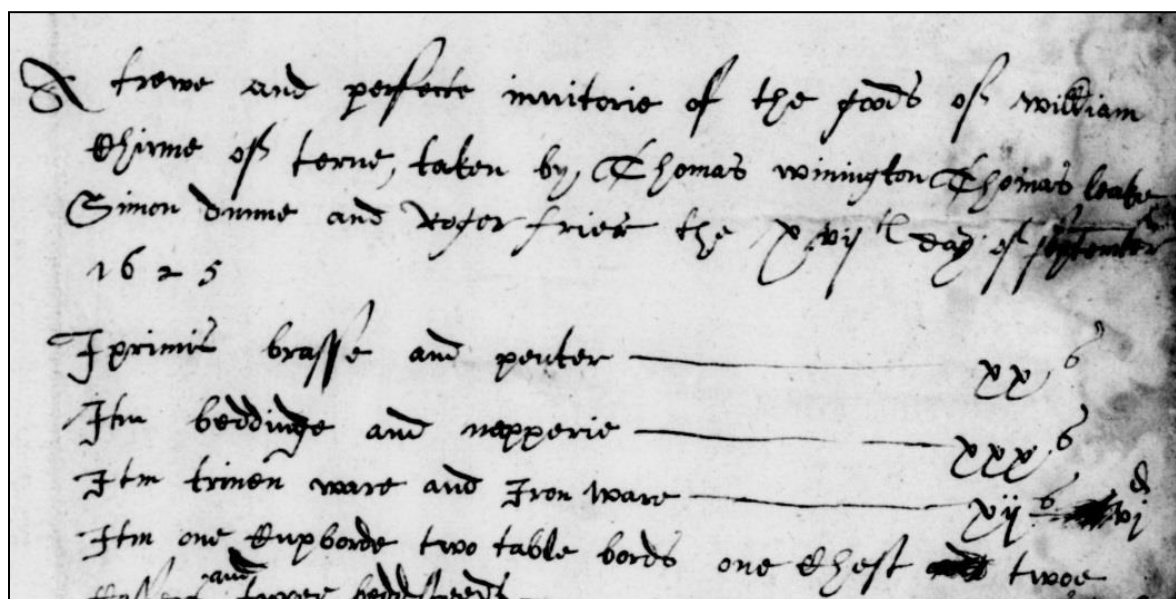 A trewe and perfecte invitorie of the goods of william
Chirme of terne, taken by, Thomas winington Thomas leake
Simon dunne and Roger frier the xvijth day of september
1625
Iprimis brasse and peuter xxs
Itm beddinge and napperie xxxs
Itm trinen ware and Iron ware xijs vjd
Itm one Cupborde two table bords one Chest twoe
and bedsteeds